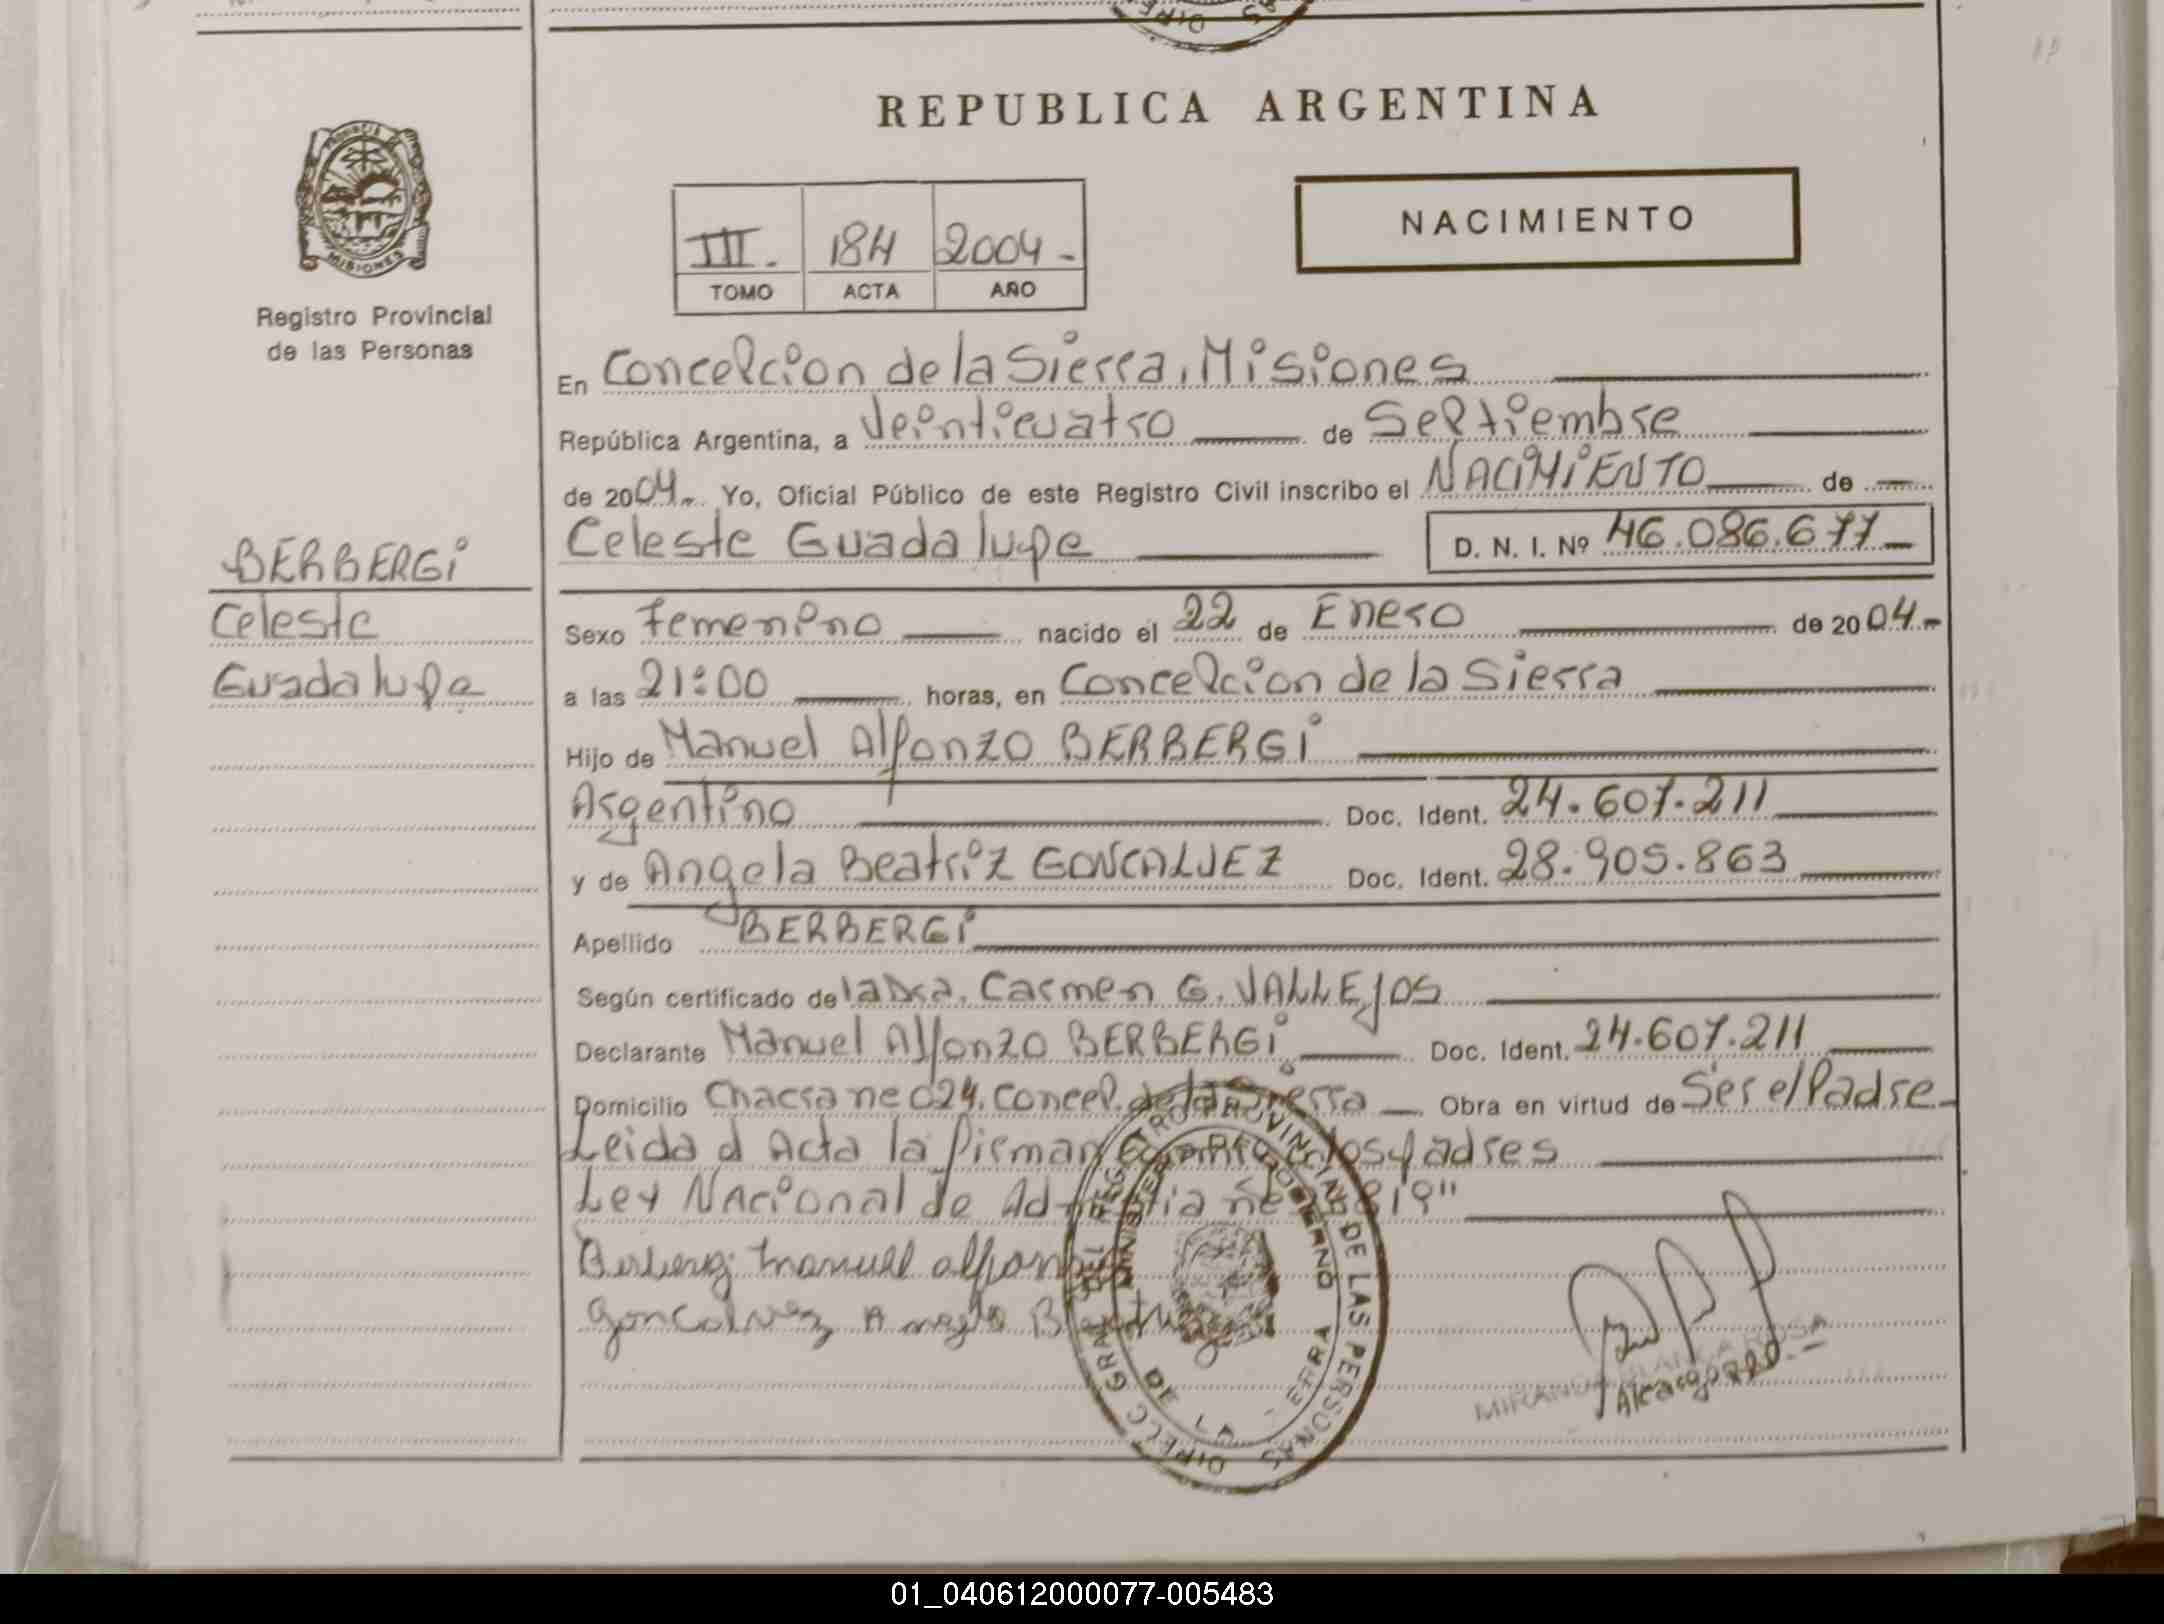 REPUBLICA ARGENTINA
PROVINCIA
MISIONES
Registro Provincial
de las Personas
III. 184 2004-
TOMO ACTA AÑO
NACIMIENTO
En Concepcion de la Sierra, Misiones
República Argentina, a Veinticuatro de Septiembre
de 2004.- Yo, Oficial Público de este Registro Civil inscribo el NACIMIENTO de
Celeste Guadalupe D. N. I. Nº 46.086.677-
BERBERGi
Celeste
Guadalupe
Sexo Femenino nacido el 22 de Enero de 2004.-
a las 21:00 horas, en Concepcion de la Sierra
Hijo de Manuel Alfonzo BERBERGi
Argentino Doc. Ident. 24.607.211
y de Angela Beatriz GONCALVEZ Doc. Ident. 28.905.863
Apellido BERBERGi
Según certificado de la Dra. Carmen G. VALLEJOS
Declarante Manuel Alfonzo BERBERGi Doc. Ident. 24.607.211
Domicilio Chacra nº 024. Concep. de la Sierra Obra en virtud de Ser el Padre-
Leida el Acta la firman los padres
Ley Nacional de
Berbergi Manuel alfonzo
Goncalvez Angela Beatriz
MIRANDA BLANCA ROSA
A/cargo RPP.-
DIRECC GRAL DEL REGISTRO PROVINCIAL DE LAS PERSONAS
MINISTERIO DE GOBIERNO
01_040612000077-005483